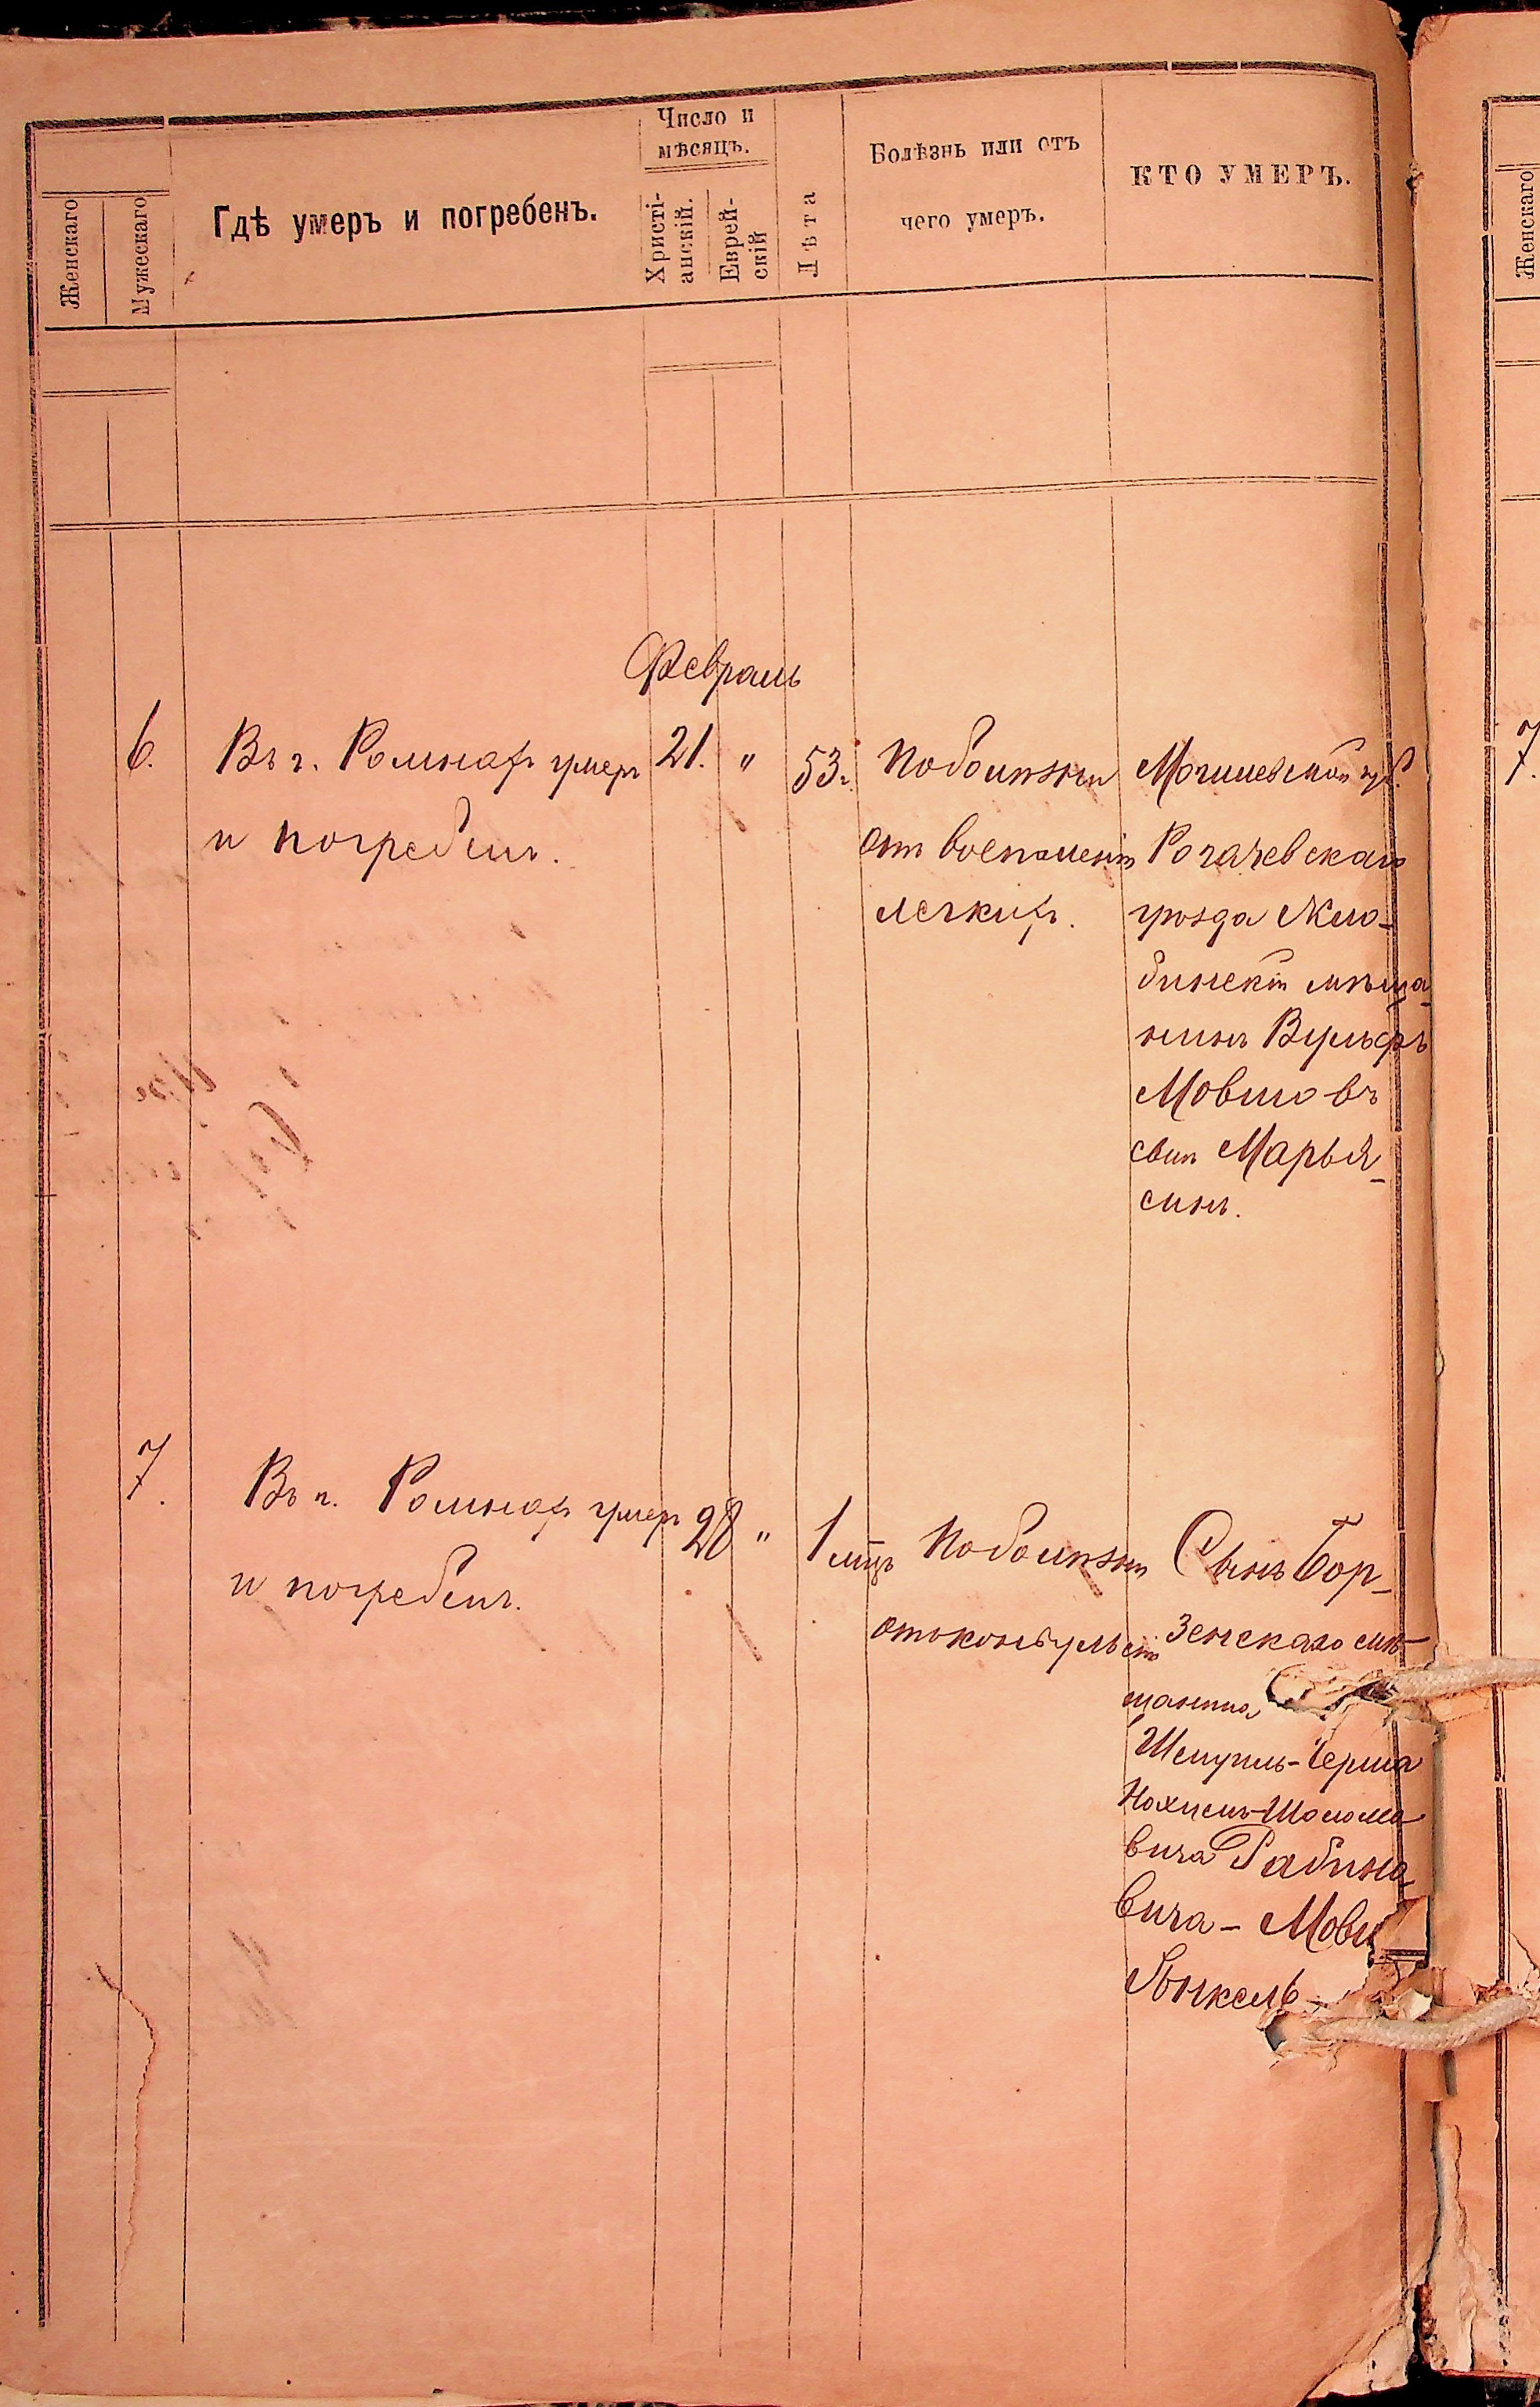 Женскаго
Мужескаго
Гдѣ умеръ и погребенъ.
Число и
мѣсяцъ.
Христі-
анскій.
Еврей-
скій
Лѣта
Болѣзнь или отъ
чего умеръ.
КТО УМЕРЪ.
Февраль
6.
Въ г. Ромнахъ умеръ
и погребенъ.
21. "
53 г.
По болѣзни
отъ воспаленія
легкихъ.
Могилевской губ.
Рогачевскаго
уѣзда Жло-
бинскій мѣща-
нинъ Вульфъ
Мовшовъ
сынъ Марья-
синъ.
7.
Въ г. Ромнахъ умеръ
и погребенъ.
28 "
1 мцъ
По болѣзни
отъ конвульсій
Сынъ Бор-
зенскаго мѣ-
щанина
Шмуиль-Герша
Нохимъ-Шоломо
вича Рабино
вича - Мовш
Янкель
Женскаго
7.